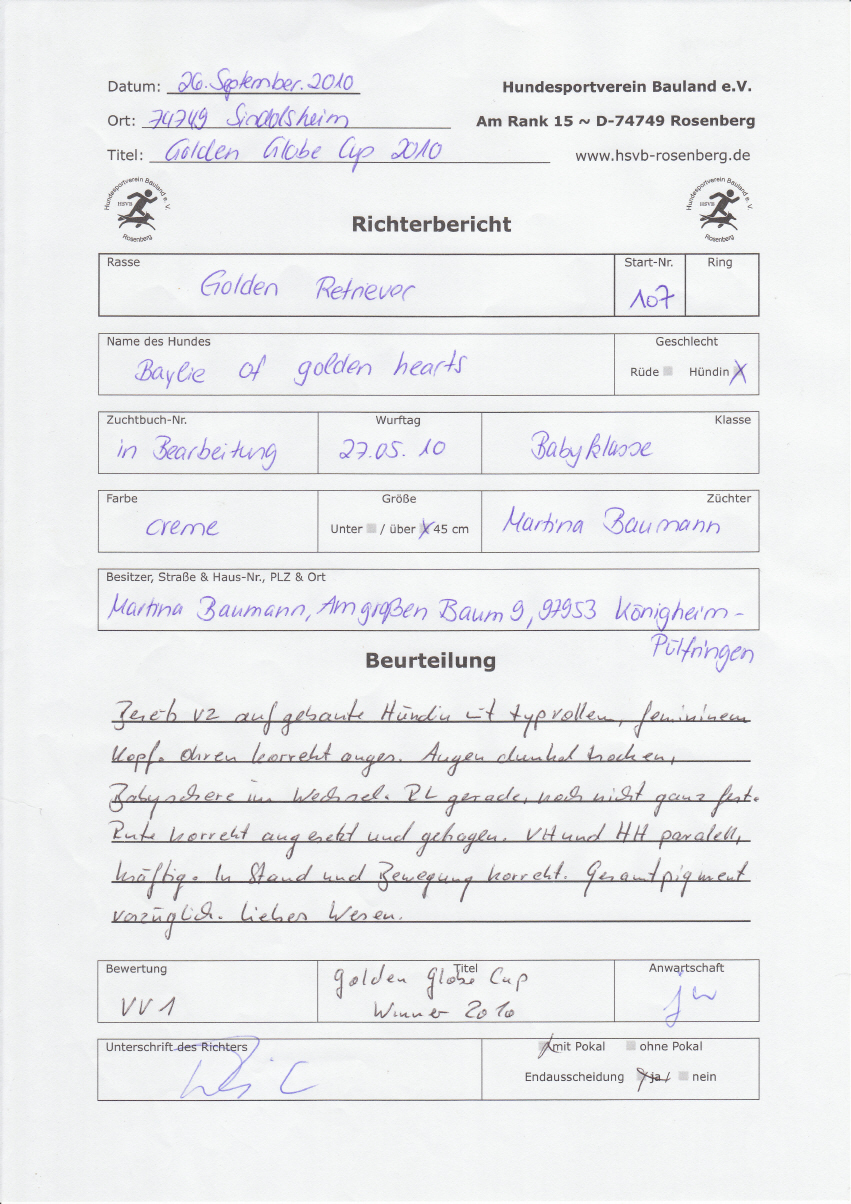 Datum: 26. September. 2010
Hundesportverein Bauland e.V.
Ort: 74749 Sindolsheim
Am Rank 15 ~ D-74749 Rosenberg
Titel: Golden Globe Cup 2010
www.hsvb-rosenberg.de
Hundesportverein Bauland e. V.
HSVB
Rosenberg
Hundesportverein Bauland e. V.
HSVB
Rosenberg
Richterbericht
Rasse
Start-Nr.
Ring
Golden Retriever
107
Name des Hundes
Geschlecht
Baylie of golden hearts
Rüde Hündin X
Zuchtbuch-Nr.
Wurftag
Klasse
in Bearbeitung
27.05. 10
Babyklasse
Farbe
Größe
Züchter
creme
Unter / über X 45 cm
Martina Baumann
Besitzer, Straße & Haus-Nr., PLZ & Ort
Martina Baumann, Am großen Baum 9, 97953 Königheim-
Pülfringen
Beurteilung
aufgebaute Hündin mit typvollem, femininem
Kopf. Ohren korrekt anges. Augen dunkel trocken,
Babyschere im Wechsel. RL gerade, noch nicht ganz fest.
Rute korrekt angesetzt und getragen. VH und HH paralell,
kräftig. In Stand und Bewegung korrekt. Gesamtpigment
vorzüglich. Liebes Wesen.
Bewertung
Titel
Anwartschaft
VV1
Golden Globe Cup
Winner 2010
Unterschrift des Richters
mit Pokal ohne Pokal
Endausscheidung ja / nein